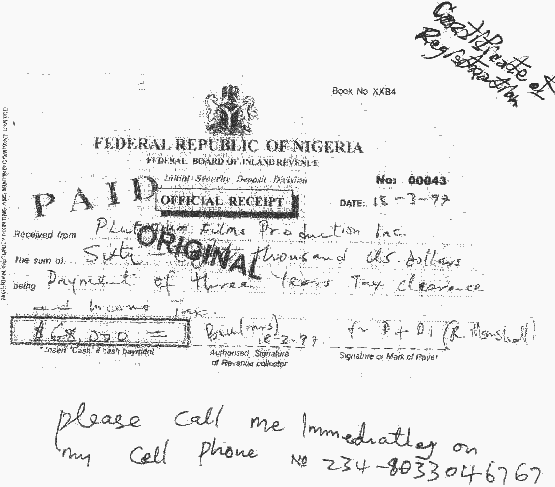 Certificate of
Registration
Book No XXB4
FEDERAL REPUBLIC OF NIGERIA
FEDERAL BOARD OF INLAND REVENUE
Initial Security Deposit Division
No: 00043
PAID
OFFICIAL RECEIPT
DATE: 18-3-97
Received from Films Production Inc.
ORIGINAL
The sum of Sixty thousand US. Dollars
being Payment of three Years Tax clearance
and Income Tax.
$68,000 =
18-3-97
Insert "Cash" if cash payment
Authorised Signature
of Revenue collector
Signature or Mark of Payer
please call me Immediatley on
my Cell Phone No 234-8033046767